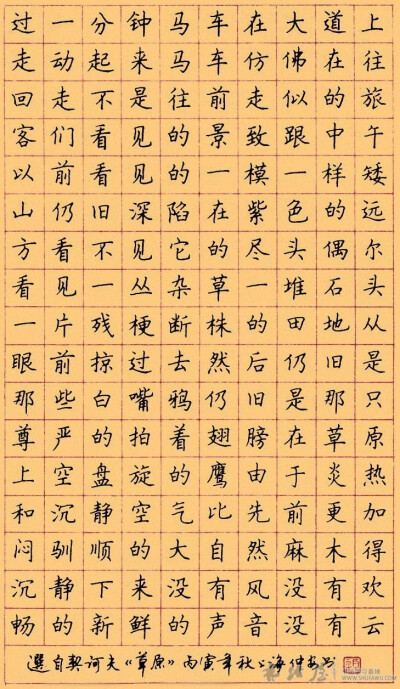 过一分钟马车在大道上
走动起来马车仿佛在往
回走不是往前走似的旅
客们看见的景致跟中午
以前看见的一模一样矮
山仍旧深陷在紫色的远
方看不见它的尽头偶尔
看见一丛杂草一堆石头
一片残梗断株的田地从
眼前掠过去然后仍旧是
那些白嘴鸦仍旧是那只
尊严的拍着翅膀在草原
上空盘旋的鹰由于炎热
和沉静空气比先前更加
闷驯顺的大自然麻木得
沉静下来没有风没有欢
畅的新鲜的声音没有云
选自契诃夫《草原》丙寅年秋上海仲安书
WWW.SHUFAWU.COM